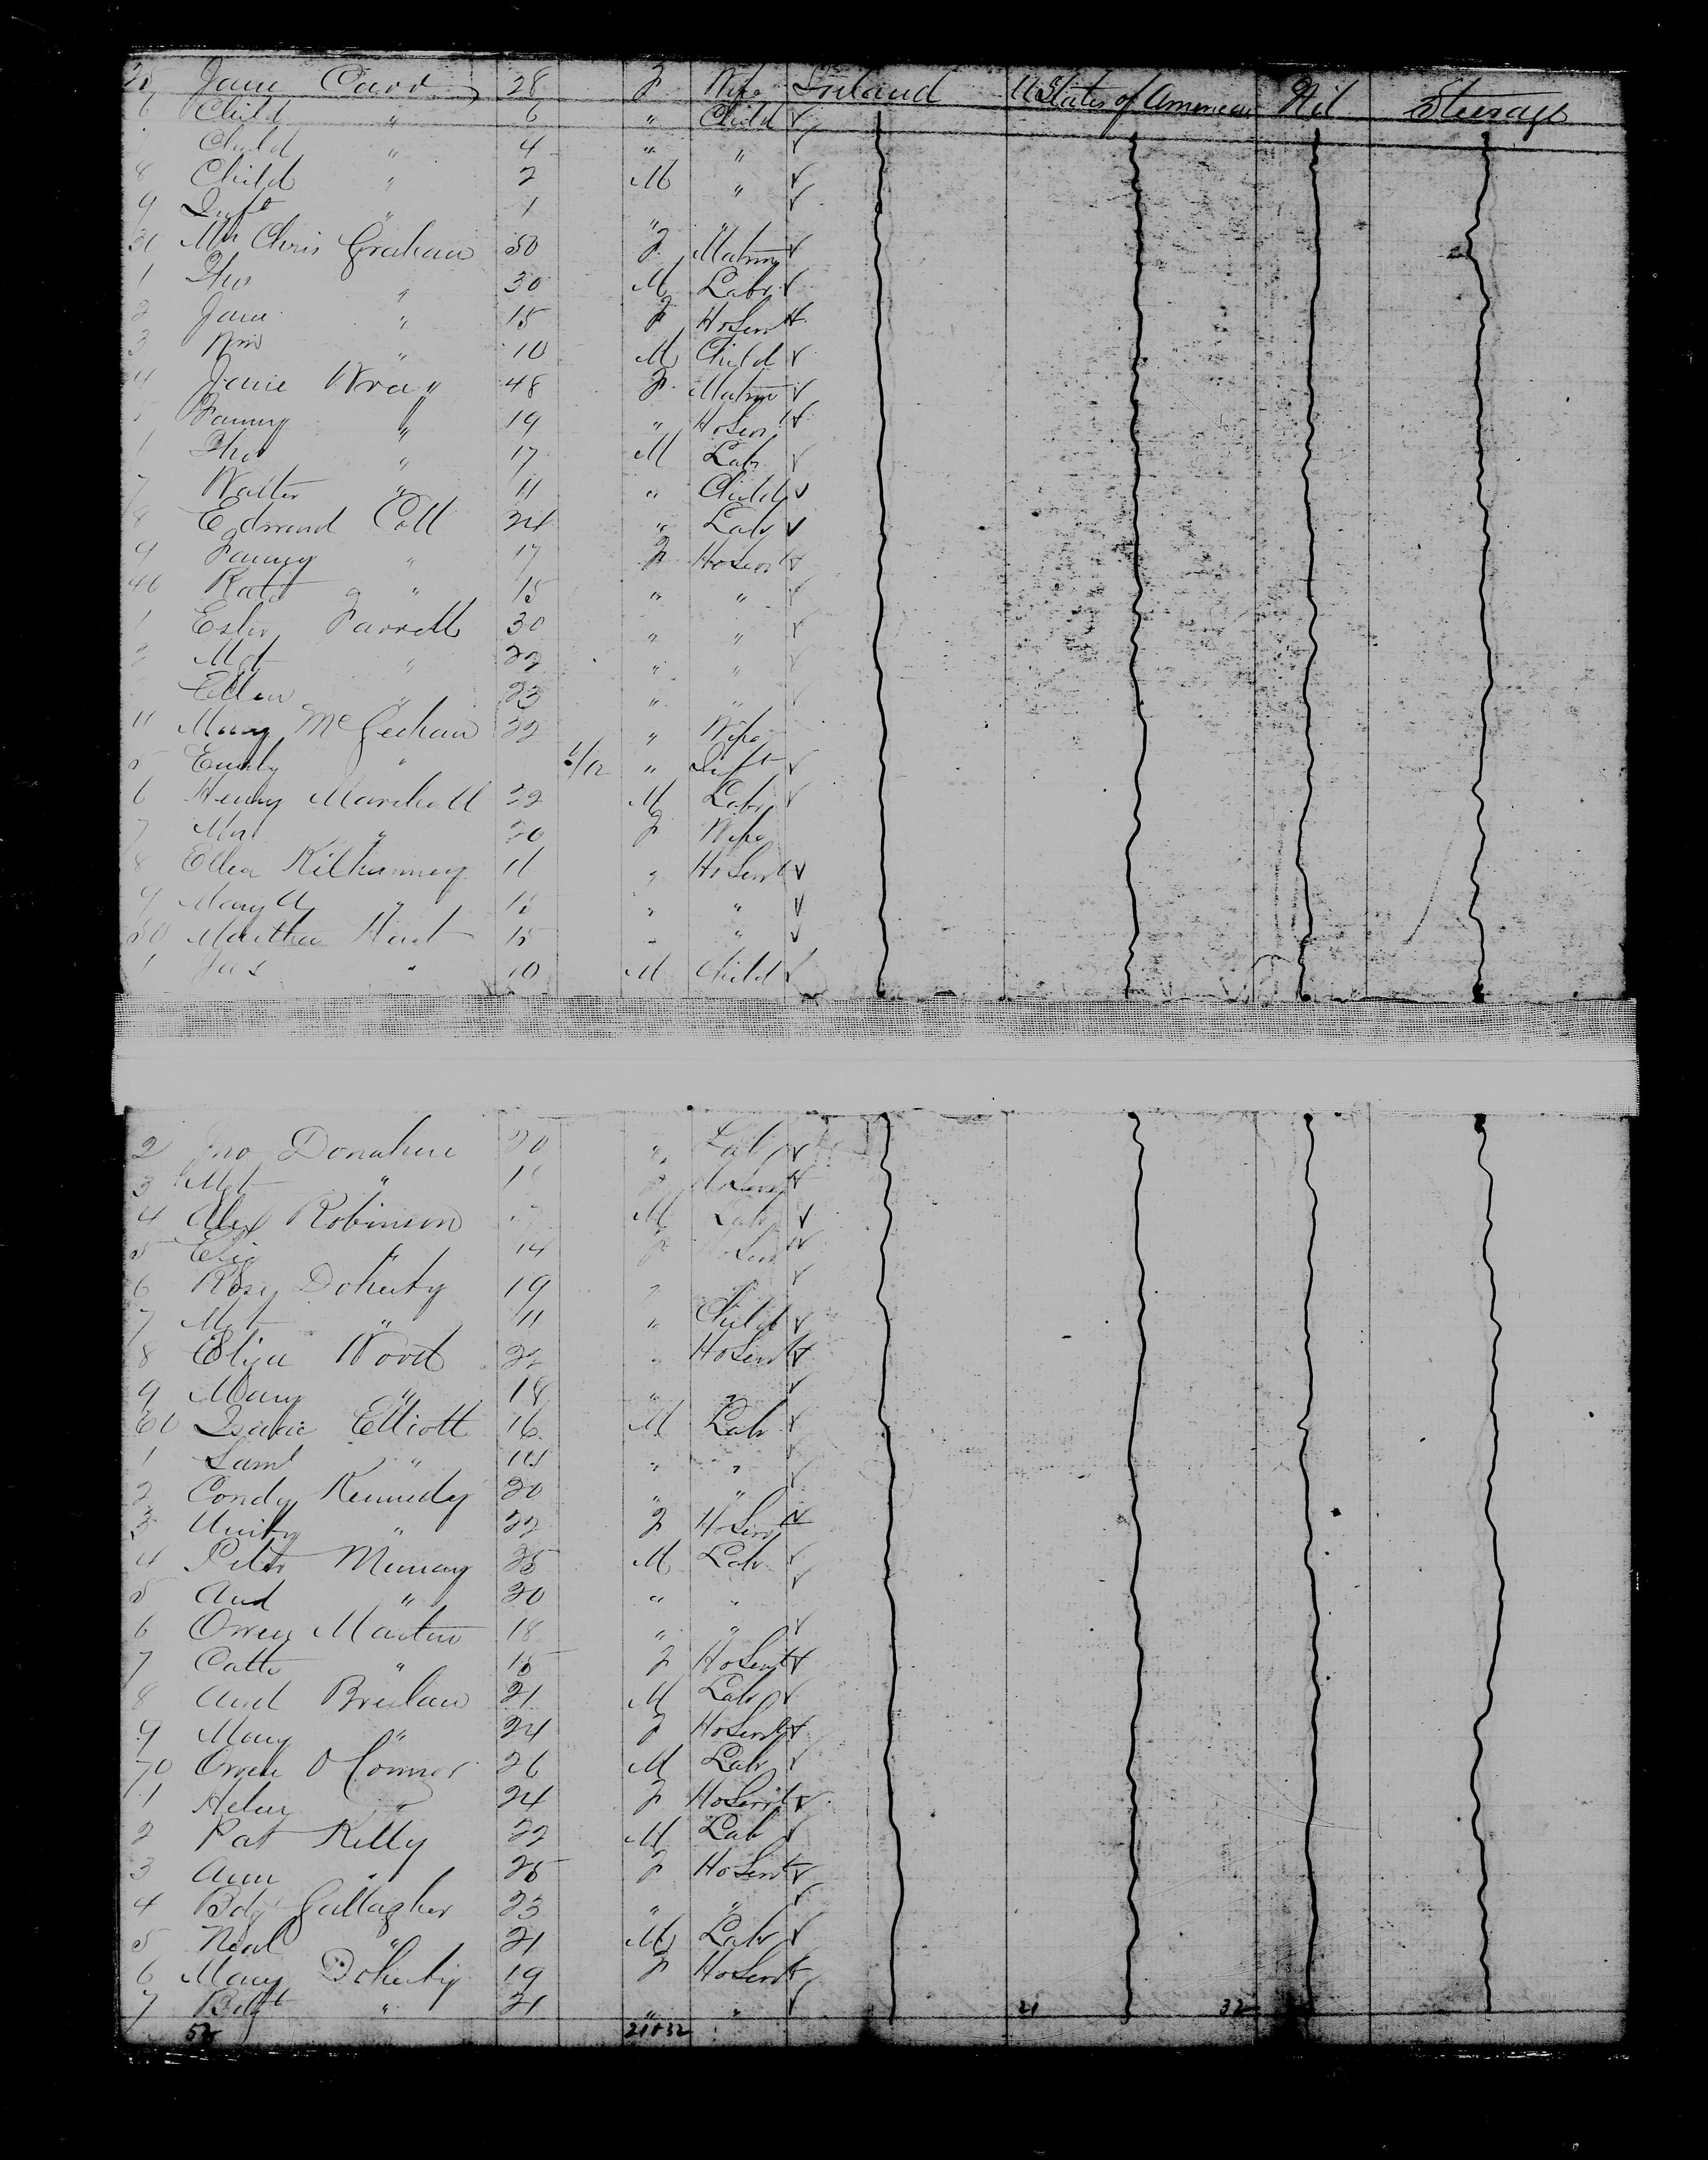 25 Jane Card 28 F Wife Ireland U States of America Nil Steerage
6 Child " 6 " Child
Child " 4 " "
8 Child " 2 M "
9 Inft " 1 " "
30 Mrs Chris Graham 50 F Matron
1 Thos " 30 M Labr
2 Jane " 15 F HoServt
3 Wm " 10 M Child
4 Janie Wray 48 F Matron
5 Fanny " 19 " HoServt
Thos " 17 M Labr
7 Walter " 11 " Child
8 Edmund Coll 24 " Labr
9 Fanny " 17 F HoServt
40 Kate " 15 " "
1 Ester Farrell 30 " "
2 Mgt " 22 " "
Ellen " 23 " "
4 Mary McGechan 22 " Wife
5 Emily " 6/12 " Inft
6 Henry Marshall 22 M Labr
7 Mrs " 20 F Wife
8 Ellen Kilkenney 11 " HoServt
9 Mary A " 18 " "
50 Martha Hunt 15 " "
1 Jas " 10 M Child
2 Jno Donahue 20 " Labr
3 Mgt " F HoServt
4 Alex Robinson M Labr
5 Eliz " 14 F HoServt
6 Rosey Doherty 19 " "
7 Mgt " 11 " Child
8 Eliza Wood 22 " HoServt
9 Mary " 18 " "
60 Isaac Elliott 16 M Labr
1 Saml " 14 " "
2 Condy Kennedy 20 " "
3 Unity " 22 F HoServt
4 Peter Murray 25 M Labr
5 And " 20 " "
6 Owen Martin 18 " "
7 Cath " 15 F HoServt
8 And Breslaw 21 M Labr
9 Mary " 24 F HoServt
70 Owen O Connor 26 M Labr
1 Helen " 24 F HoServt
2 Pat Kelly 22 M Labr
3 Ann " 25 F HoServt
4 Bdgt Gallagher 23 " "
5 Neal " 21 M Labr
6 Mary Doherty 19 F HoServt
7 Bdgt " 21 " " 21 32
53 21+32